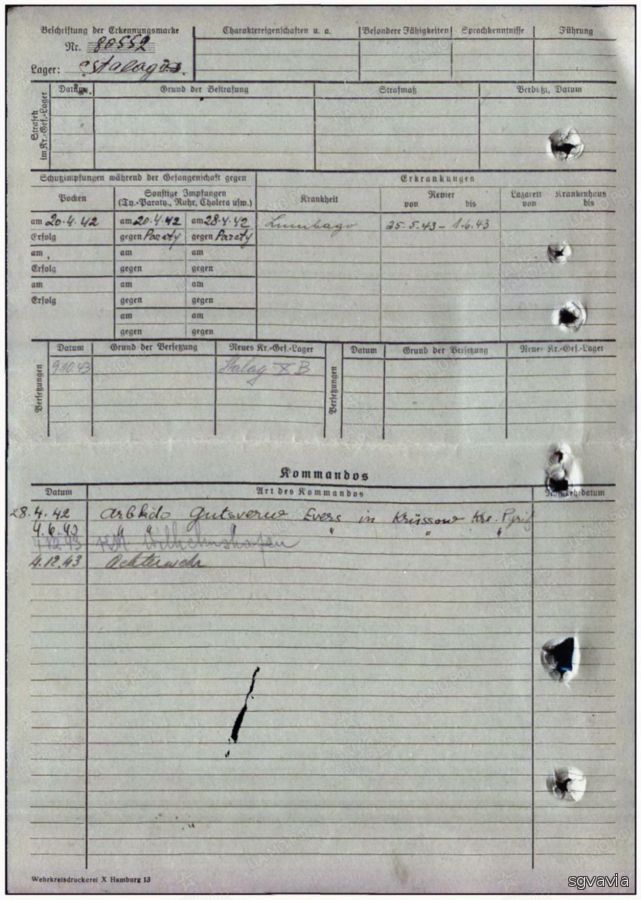 Beschriftung der Erkennungsmarke
Nr. 80552
Lager: Stalag
Charaktereigenschaften u. a.
Besondere Fähigkeiten
Sprachkenntnisse
Führung
Strafen im Kr.-Gef.-Lager
Datum
Grund der Bestrafung
Strafmaß
Verbüßt, Datum
Schutzimpfungen während der Gefangenschaft gegen
Erkrankungen
Pocken
Sonstige Impfungen
(Ty.-Paraty., Ruhr, Cholera usw.)
Krankheit
Revier
von bis
Lazarett Krankenhaus
von bis
am 20.4.42 am 20.4.42 am 28.4.42 Lumbago 25.5.43 - 1.6.43
Erfolg gegen Paraty gegen Paraty
am am am
Erfolg gegen gegen
am am am
Erfolg gegen gegen
am am
gegen gegen
Versetzungen
Datum
Grund der Versetzung
Neues Kr.-Gef.-Lager
Versetzungen
Datum
Grund der Versetzung
Neues Kr.-Gef.-Lager
43 Stalag X B
Kommandos
Datum
Art des Kommandos
28.4.42 Arbkdo Gutsverw Evers in Krüssow Kre. Pyritz
4.6.42 " " " " "
Wilhelmshafen
4.12.43 Achterwehr
Wehrkreisdruckerei X Hamburg 13
sgvavia